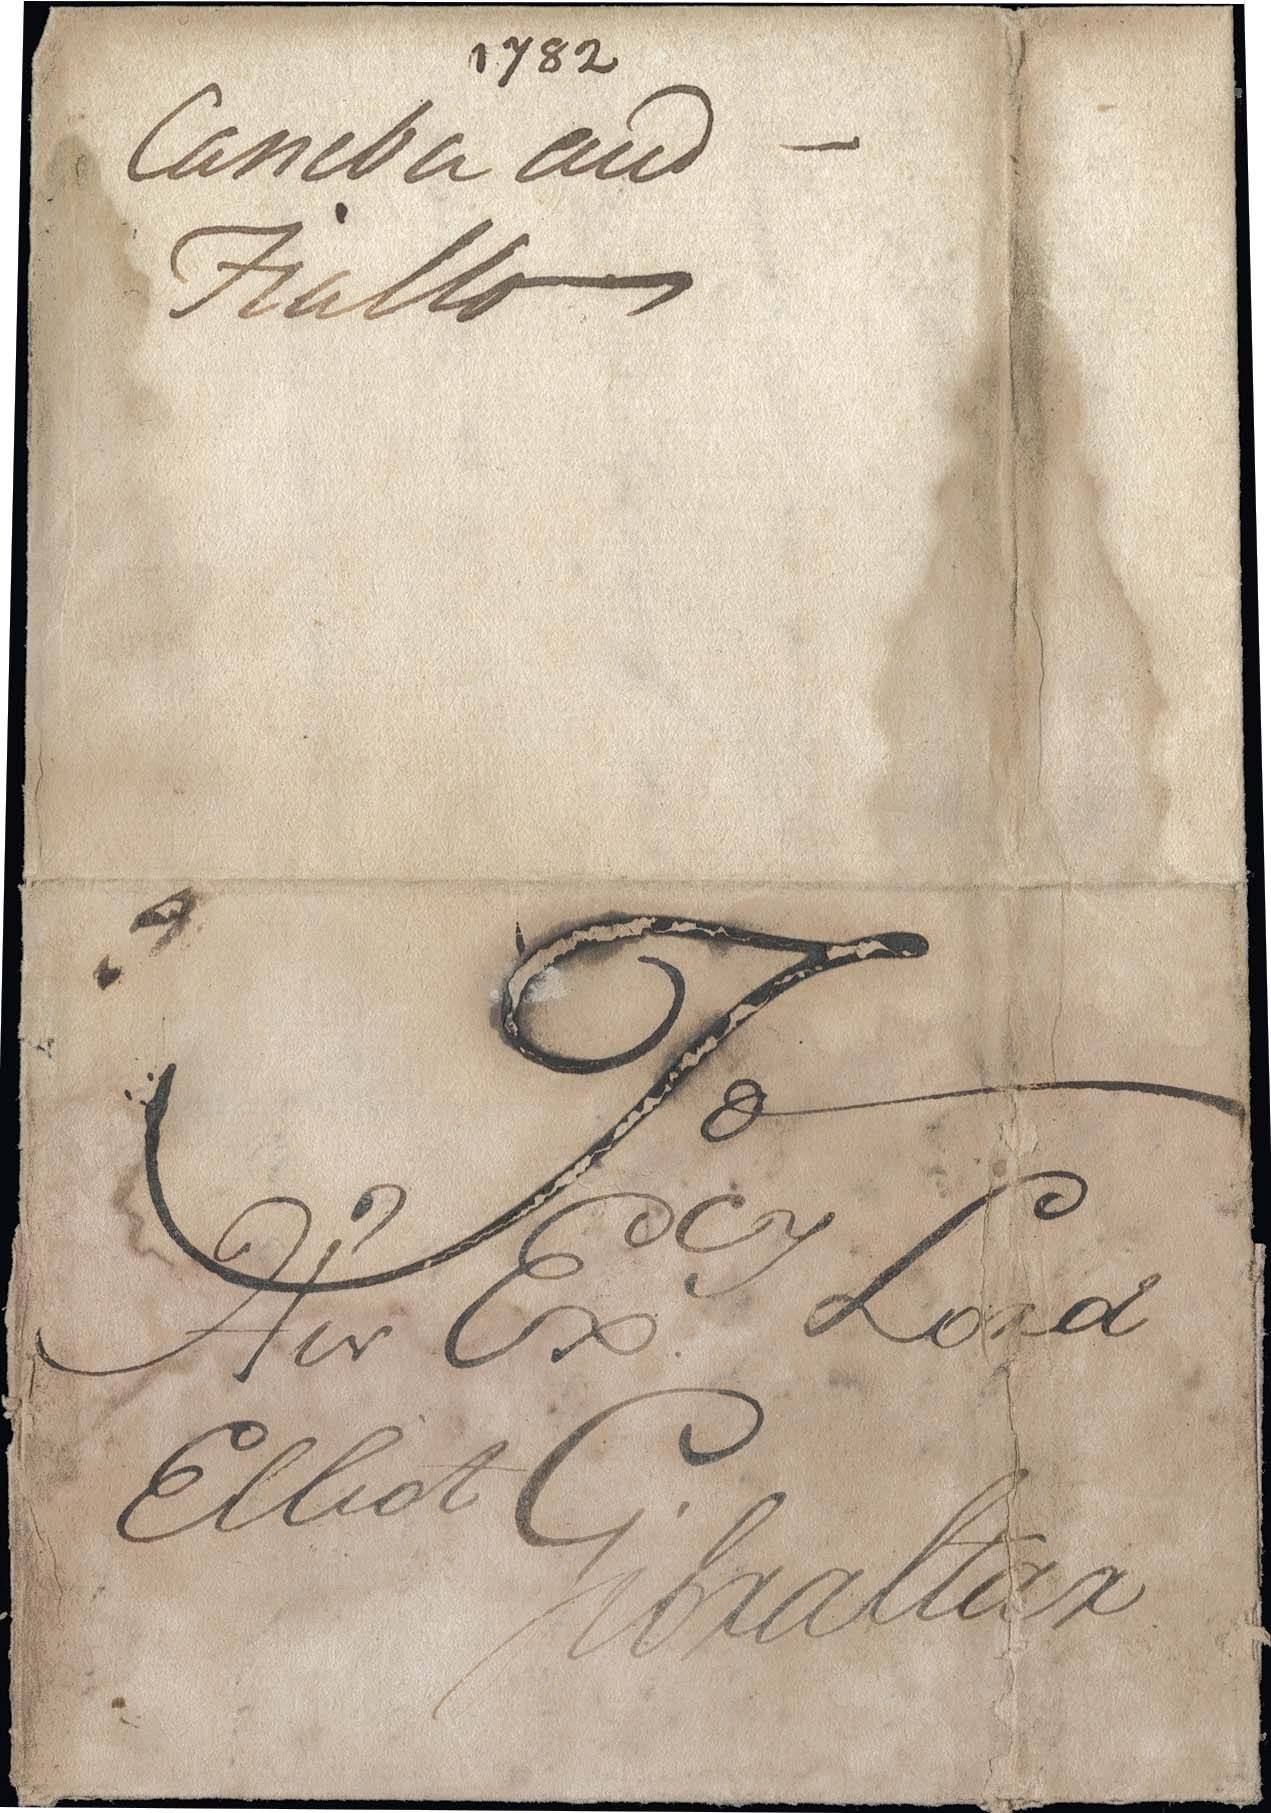 1782
Caneba and —
Fiallo
To
His Excy Lord
Elliot Gibraltar